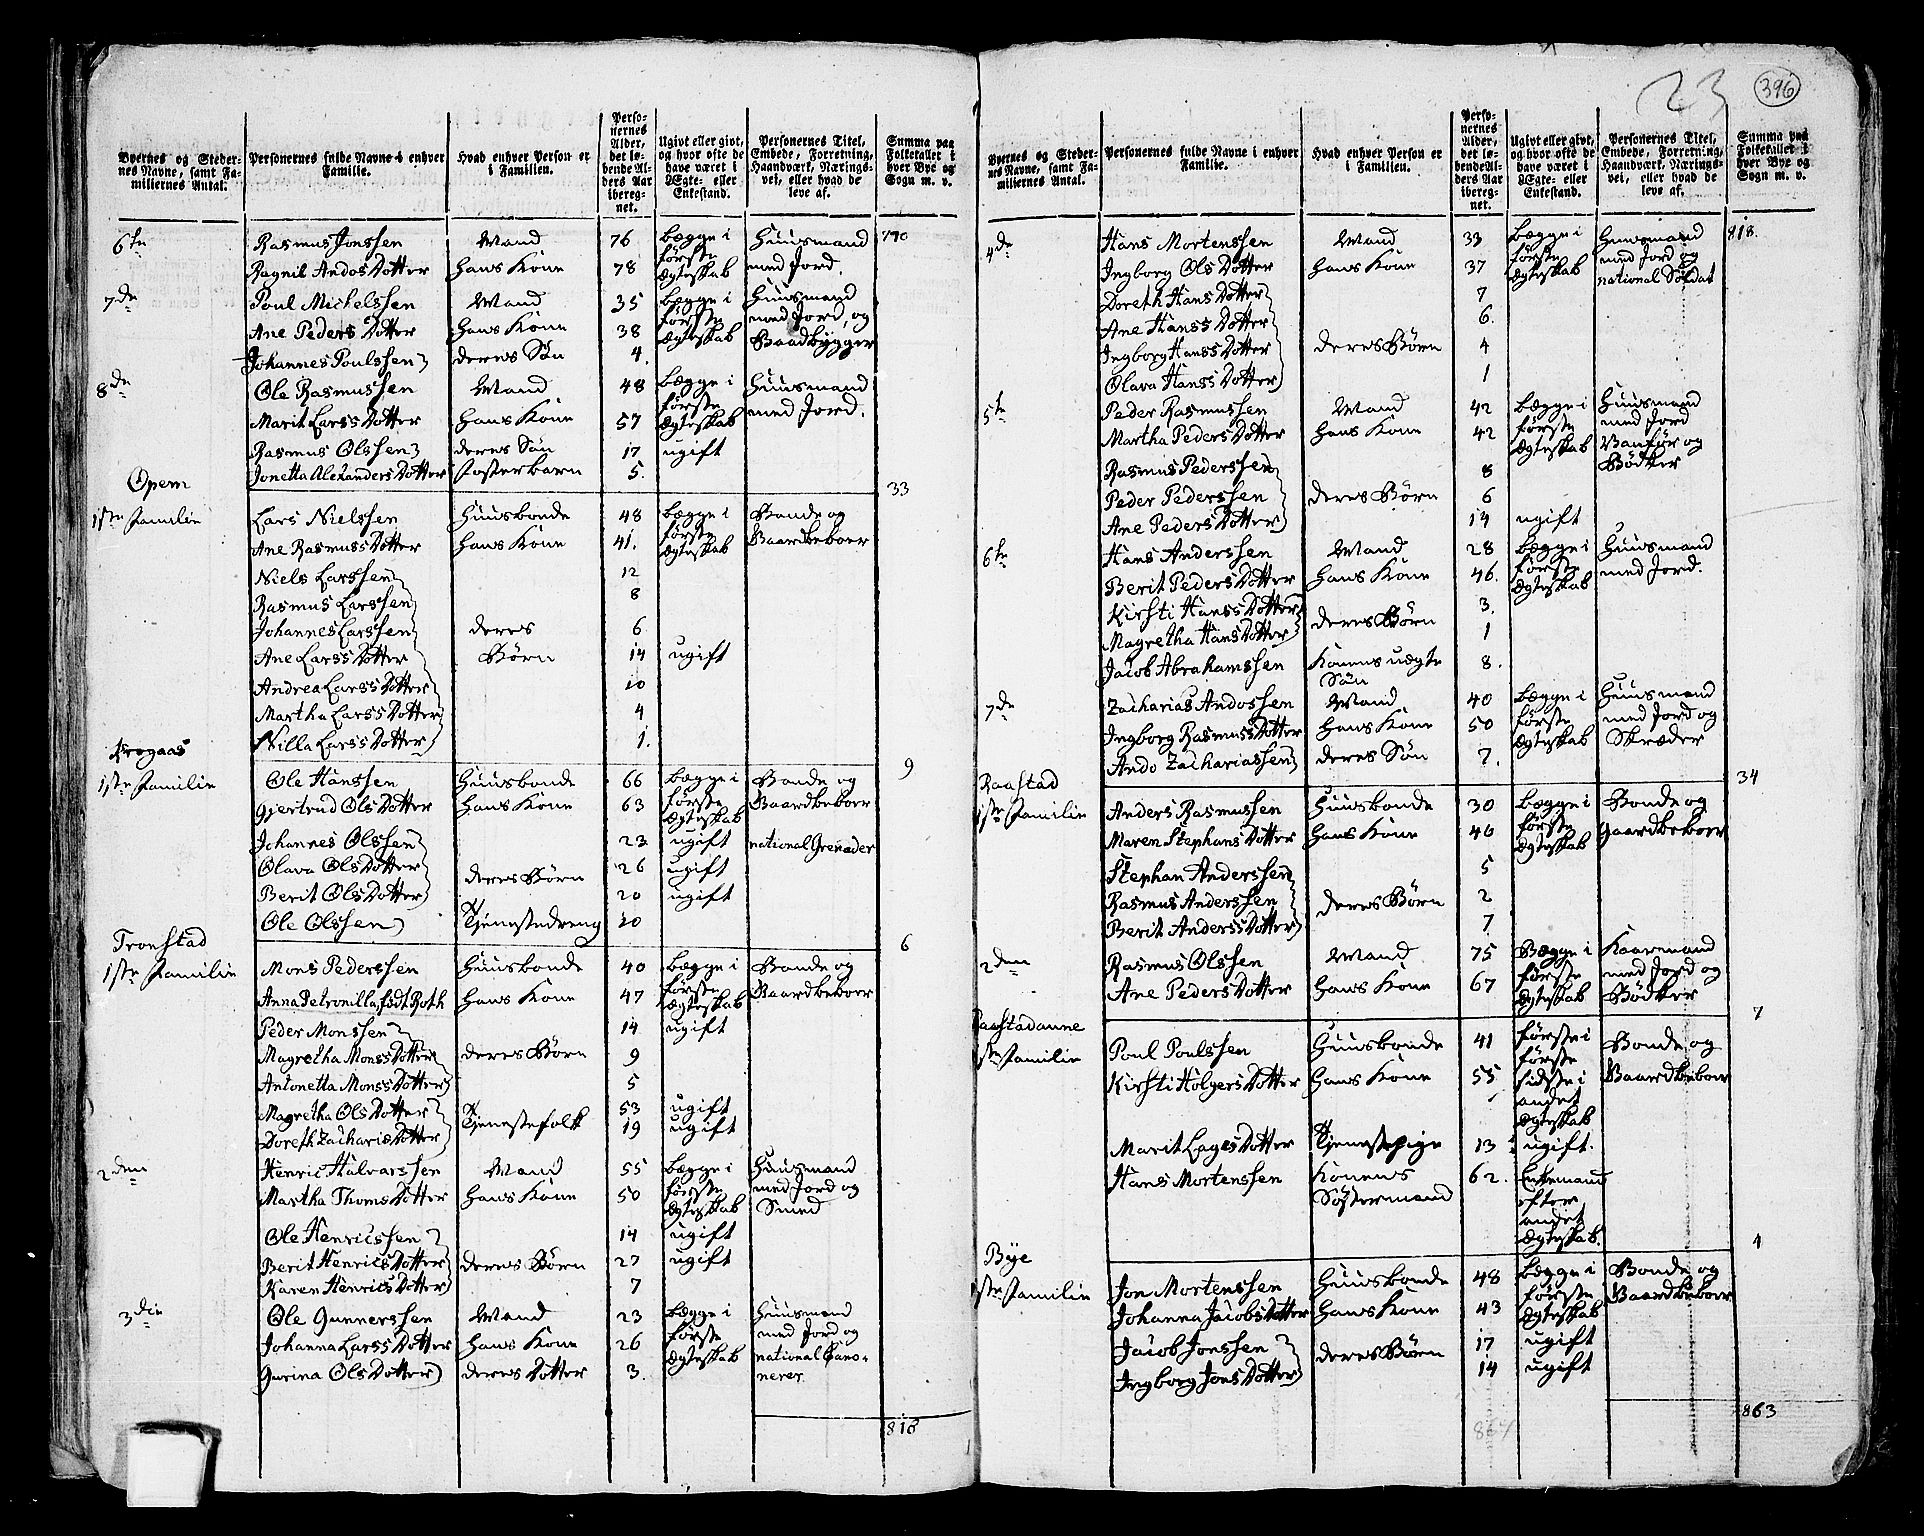 23
396
Byernes og Stedernes Navne, samt Familiernes Antal.
Personernes fulde Navne i enhver Familie.
Hvad enhver Person er i Familien.
Personernes Alder, det løbende Alders Aar iberegnet.
Ugivt eller givt, og hvor ofte de have været i Ægte- eller Enkestand.
Personernes Titel, Embede, Forretning, Haandværk, Næringsvei, eller hvad de leve af.
Summa paa Folketallet i hver Bye og Sogn m. v.
6te Rasmus Jonssen Mand 76 bægge i første Ægteskab Huusmand med Jord. 770
Ragnil Andos Dotter hans Kone 78
7de Poul Michelssen Mand 35 bægge i første Ægteskab Huusmand med Jord, og Baadbygger
Ane Peders Dotter hans Kone 38
Johannes Poulssen deres Søn 4.
8de Ole Rasmussen Mand 48 bægge i første Ægteskab Huusmand med Jord.
Marit Larss Dotter hans Kone 57
Rasmus Olssen deres Søn 17 ugift
Jonetta Alexanders Dotter fosterbarn 5.
Opem 33
1ste Familie Lars Nielssen Huusbonde 48 bægge i første Ægteskab Bonde og Gaardbeboer
Ane Rasmuss Dotter hans Kone 41.
Niels Larssen 12
Rasmus Larssen 8
Johannes Larssen deres 6
Ane Larss Dotter Børn 14 ugift
Andrea Larss Dotter 10
Martha Larss Dotter 4
Nilla Larss Dotter 1.
Krogaas 9
1ste Familie Ole Hanssen Huusbonde 66 bægge i første Ægteskab Bonde og Gaardbeboer
Gjertrud Ols Dotter hans Kone 63
Johannes Olssen 23 ugift national Grenader
Olava Ols Dotter deres Børn 26 ugift
Berit Ols Dotter 20 ugift
Ole Olssen Tjenestedreng 10
Tronstad 6
1ste Familie Mons Pederssen Huusbonde 40 bægge i første Ægteskab Bonde og Gaardbeboer
Anna Petronilla, født Roth hans Kone 47
Peder Monssen 14 ugift
Magretha Monss Dotter deres Børn 9
Antonetta Monss Dotter 5
Magretha Ols Dotter Tjenestefolk 53 ugift
Doreth Zachariæ Dotter 19 ugift
2den Henric Halvarssen Mand 55 bægge i første Ægteskab Huusmand med Jord og Smed
Martha Thoms Dotter hans Kone 50
Ole Henricssen 14 ugift
Berit Henrics Dotter deres Børn 27 ugift
Karen Henrics Dotter 7
3die Ole Gunnerssen Mand 23 bægge i første Ægteskab Huusmand med Jord og national Canonerer
Johanna Larss Dotter hans Kone 26
Gurina Ols Dotter deres Dotter 3.
818
Byernes og Stedernes Navne, samt Familiernes Antal.
Personernes fulde Navne i enhver Familie.
Hvad enhver Person er i Familien.
Personernes Alder, det løbende Alders Aar iberegnet.
Ugivt eller givt, og hvor ofte de have været i Ægte- eller Enkestand.
Personernes Titel, Embede, Forretning, Haandværk, Næringsvei, eller hvad de leve af.
Summa paa Folketallet i hver Bye og Sogn m. v.
4de Hans Mortenssen Mand 33 bægge i første Ægteskab Huusmand med Jord og national Soldat 818.
Ingborg Ols Dotter hans Kone 37
Doreth Hans Dotter 7
Ane Hanss Dotter 6.
Ingborg Hanss Dotter deres Børn 4
Olava Hanss Dotter 1
5te Peder Rasmussen Mand 42 bægge i første Ægteskab Huusmand med Jord Vanfør og Bødker
Martha Peders Dotter hans Kone 42
Rasmus Pederssen 8
Peder Pederssen deres Børn 6
Ane Peders Dotter 14 ugift
6te Hans Anderssen Mand 28 bægge i første Ægteskab Huusmand med Jord.
Berit Peders Dotter hans Kone 46.
Kirsti Hanss Dotter deres Børn 3.
Magretha Hans Dotter 1
Jacob Abrahamssen Konens uægte Søn 8.
7de Zacharias Andossen Mand 40 bægge i første Ægteskab Huusmand med Jord og Skræder
Ingborg Rasmuss Dotter hans Kone 50
Ando Zachariassen deres Søn 7.
Raastad 34
1ste Familie Anders Rasmussen Huusbonde 30 bægge i første Ægteskab Bonde og Gaardbeboer
Maren Stephans Dotter hans Kone 40
Stephan Anderssen 5
Rasmus Anderssen deres Børn 2
Berit Anderss Dotter 7
2den Rasmus Olssen Mand 75 Bægge i første Ægteskab Kaarmand med Jord og Bødker
Ane Peders Dotter hans Kone 67
Raastadanne 7
1ste Familie Poul Poulssen Huusbonde 41 første i første Bonde og Gaardbeboer
Kirsti Holgers Dotter hans Kone 55 sidste i andet Ægteskab
Marit Lages Dotter Tjenestepige 13 ugift.
Hans Mortenssen Konens Søstermand 62. Enkemand efter andet Ægteskab.
Bye 4
1ste Familie Jon Mortenssen Huusbonde 48 bægge i første Ægteskab Bonde og Gaardbeboer
Johanna Jacobs Dotter hans Kone 43
Jacob Jonssen deres Børn 17 ugift
Ingborg Jons Dotter 14 ugift
864
863